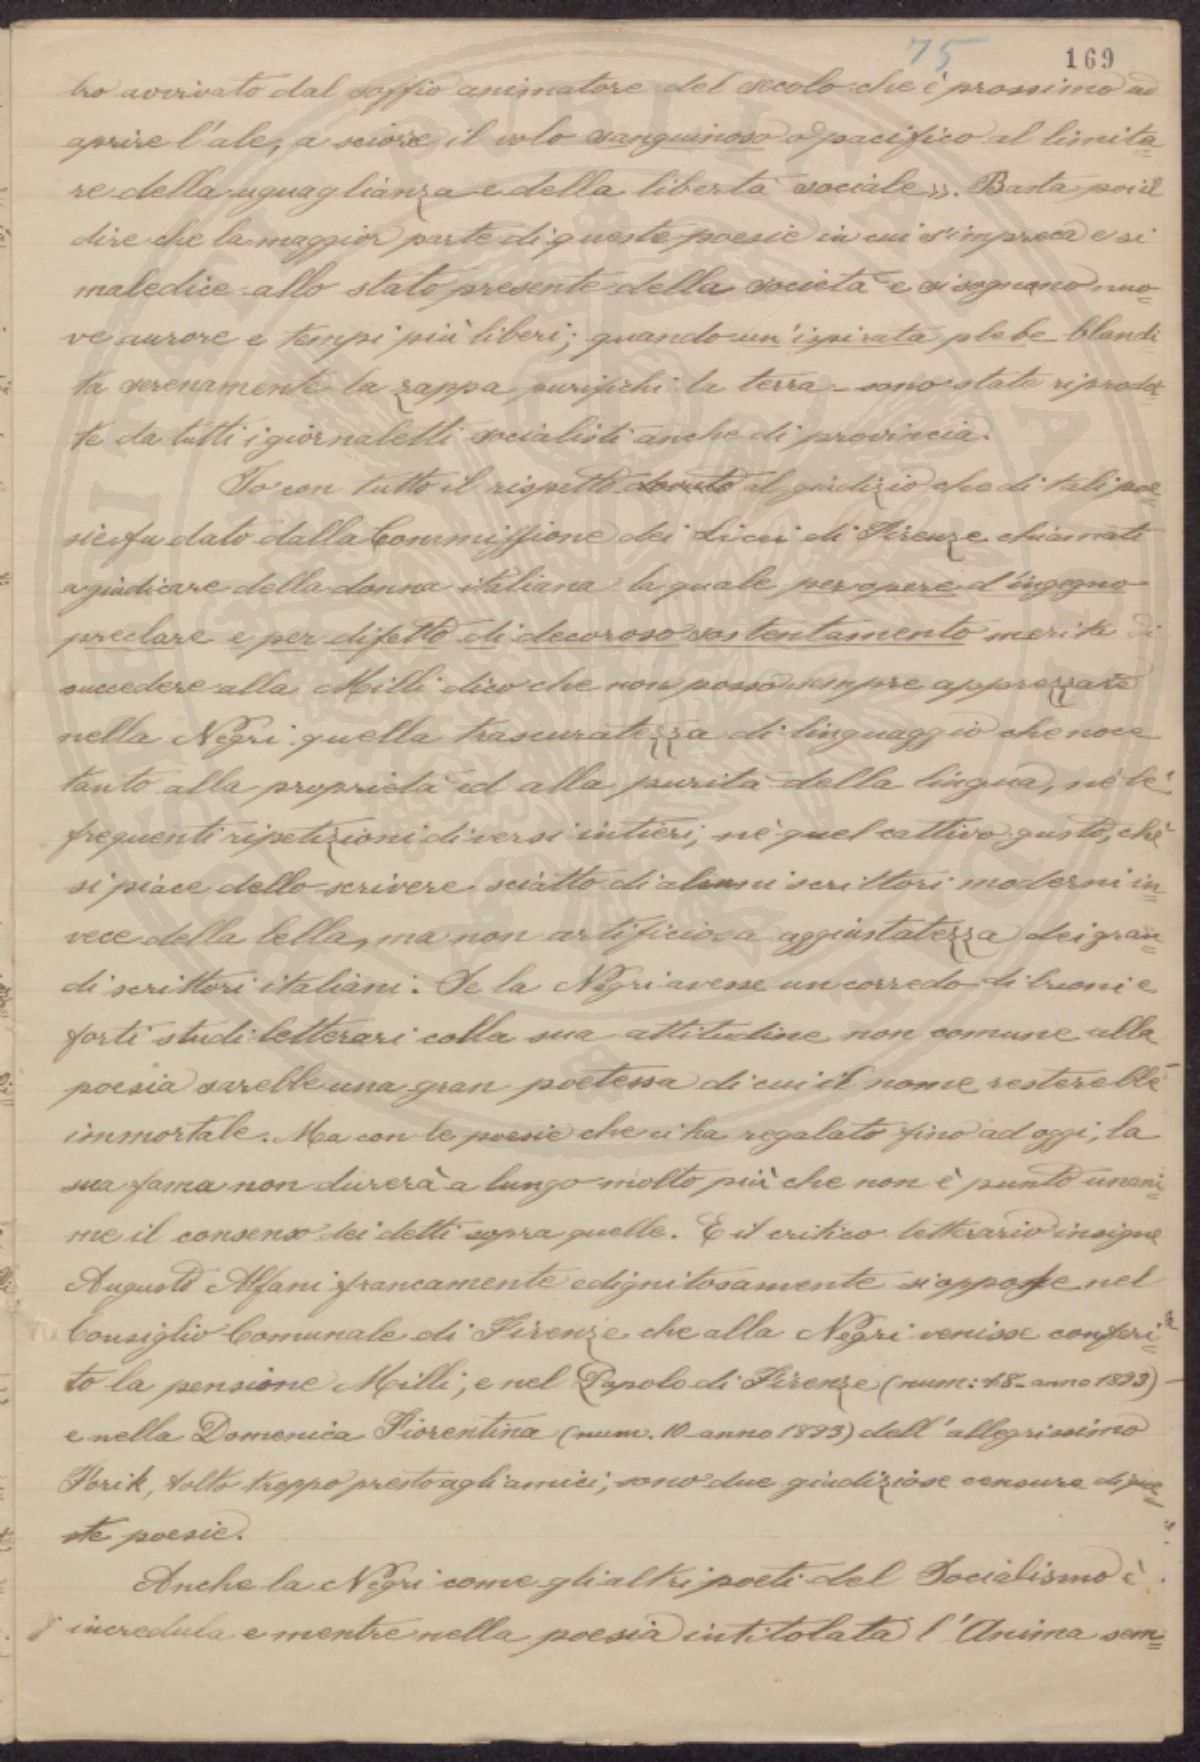 75 169
tro avvivato dal soffio animatore del secolo che è prossimo ad
aprire l'ale, a sciore il volo sanguinoso o pacifico al limita=
re della uguaglianza e della libertà sociale». Basta poi il
dire che la maggior parte di queste poesie in cui s'impreca e si
maledice allo stato presente della società e si sognano nuo=
ve aurore e tempi più liberi; quando un'ispirata plebe blandi=
ta serenamente la zappa purifichi la terra sono state riprodot=
te da tutti i giornaletti socialisti anche di provincia.
Io con tutto il rispetto dovuto al giudizio che di tali poe=
sie fu dato dalla Commissione dei Licei di Firenze chiamati
a giudicare della donna italiana la quale per opere d'ingegno
preclare e per difetto di decoroso sostentamento merita di
succedere alla Milli dico che non posso sempre apprezzare
nella Negri quella trascuratezza di linguaggio che noce
tanto alla proprietà ed alla purità della lingua, nè le
frequenti ripetizioni di versi intieri, nè quel cattivo gusto, che
si piace dello scrivere sciatto di alcuni scrittori moderni in=
vece della bella, ma non artificiosa aggiustatezza dei gran=
di scrittori italiani. Se la Negri avesse un corredo di buoni e
forti studi letterari colla sua attitudine non comune alla
poesia sarebbe una gran poetessa di cui il nome resterebbe
immortale. Ma con le poesie che ci ha regalato fino ad oggi, la
sua fama non durerà a lungo molto più che non è punto unani=
me il consenso dei detti sopra quelle. E il critico letterario insigne
Augusto Alfani francamente e dignitosamente si oppose nel
Consiglio Comunale di Firenze che alla Negri venisse conferi=
to la pensione Milli, e nel Popolo di Firenze (num: 48 - anno 1893)
e nella Domenica Fiorentina (num. 10 - anno 1893) dell'allegrissimo
Yorik, tolto troppo presto agli amici, sono due giudiziose censure di que=
ste poesie.
Anche la Negri come gli altri poeti del Socialismo è
incredula e mentre nella poesia intitolata l'Anima sem=